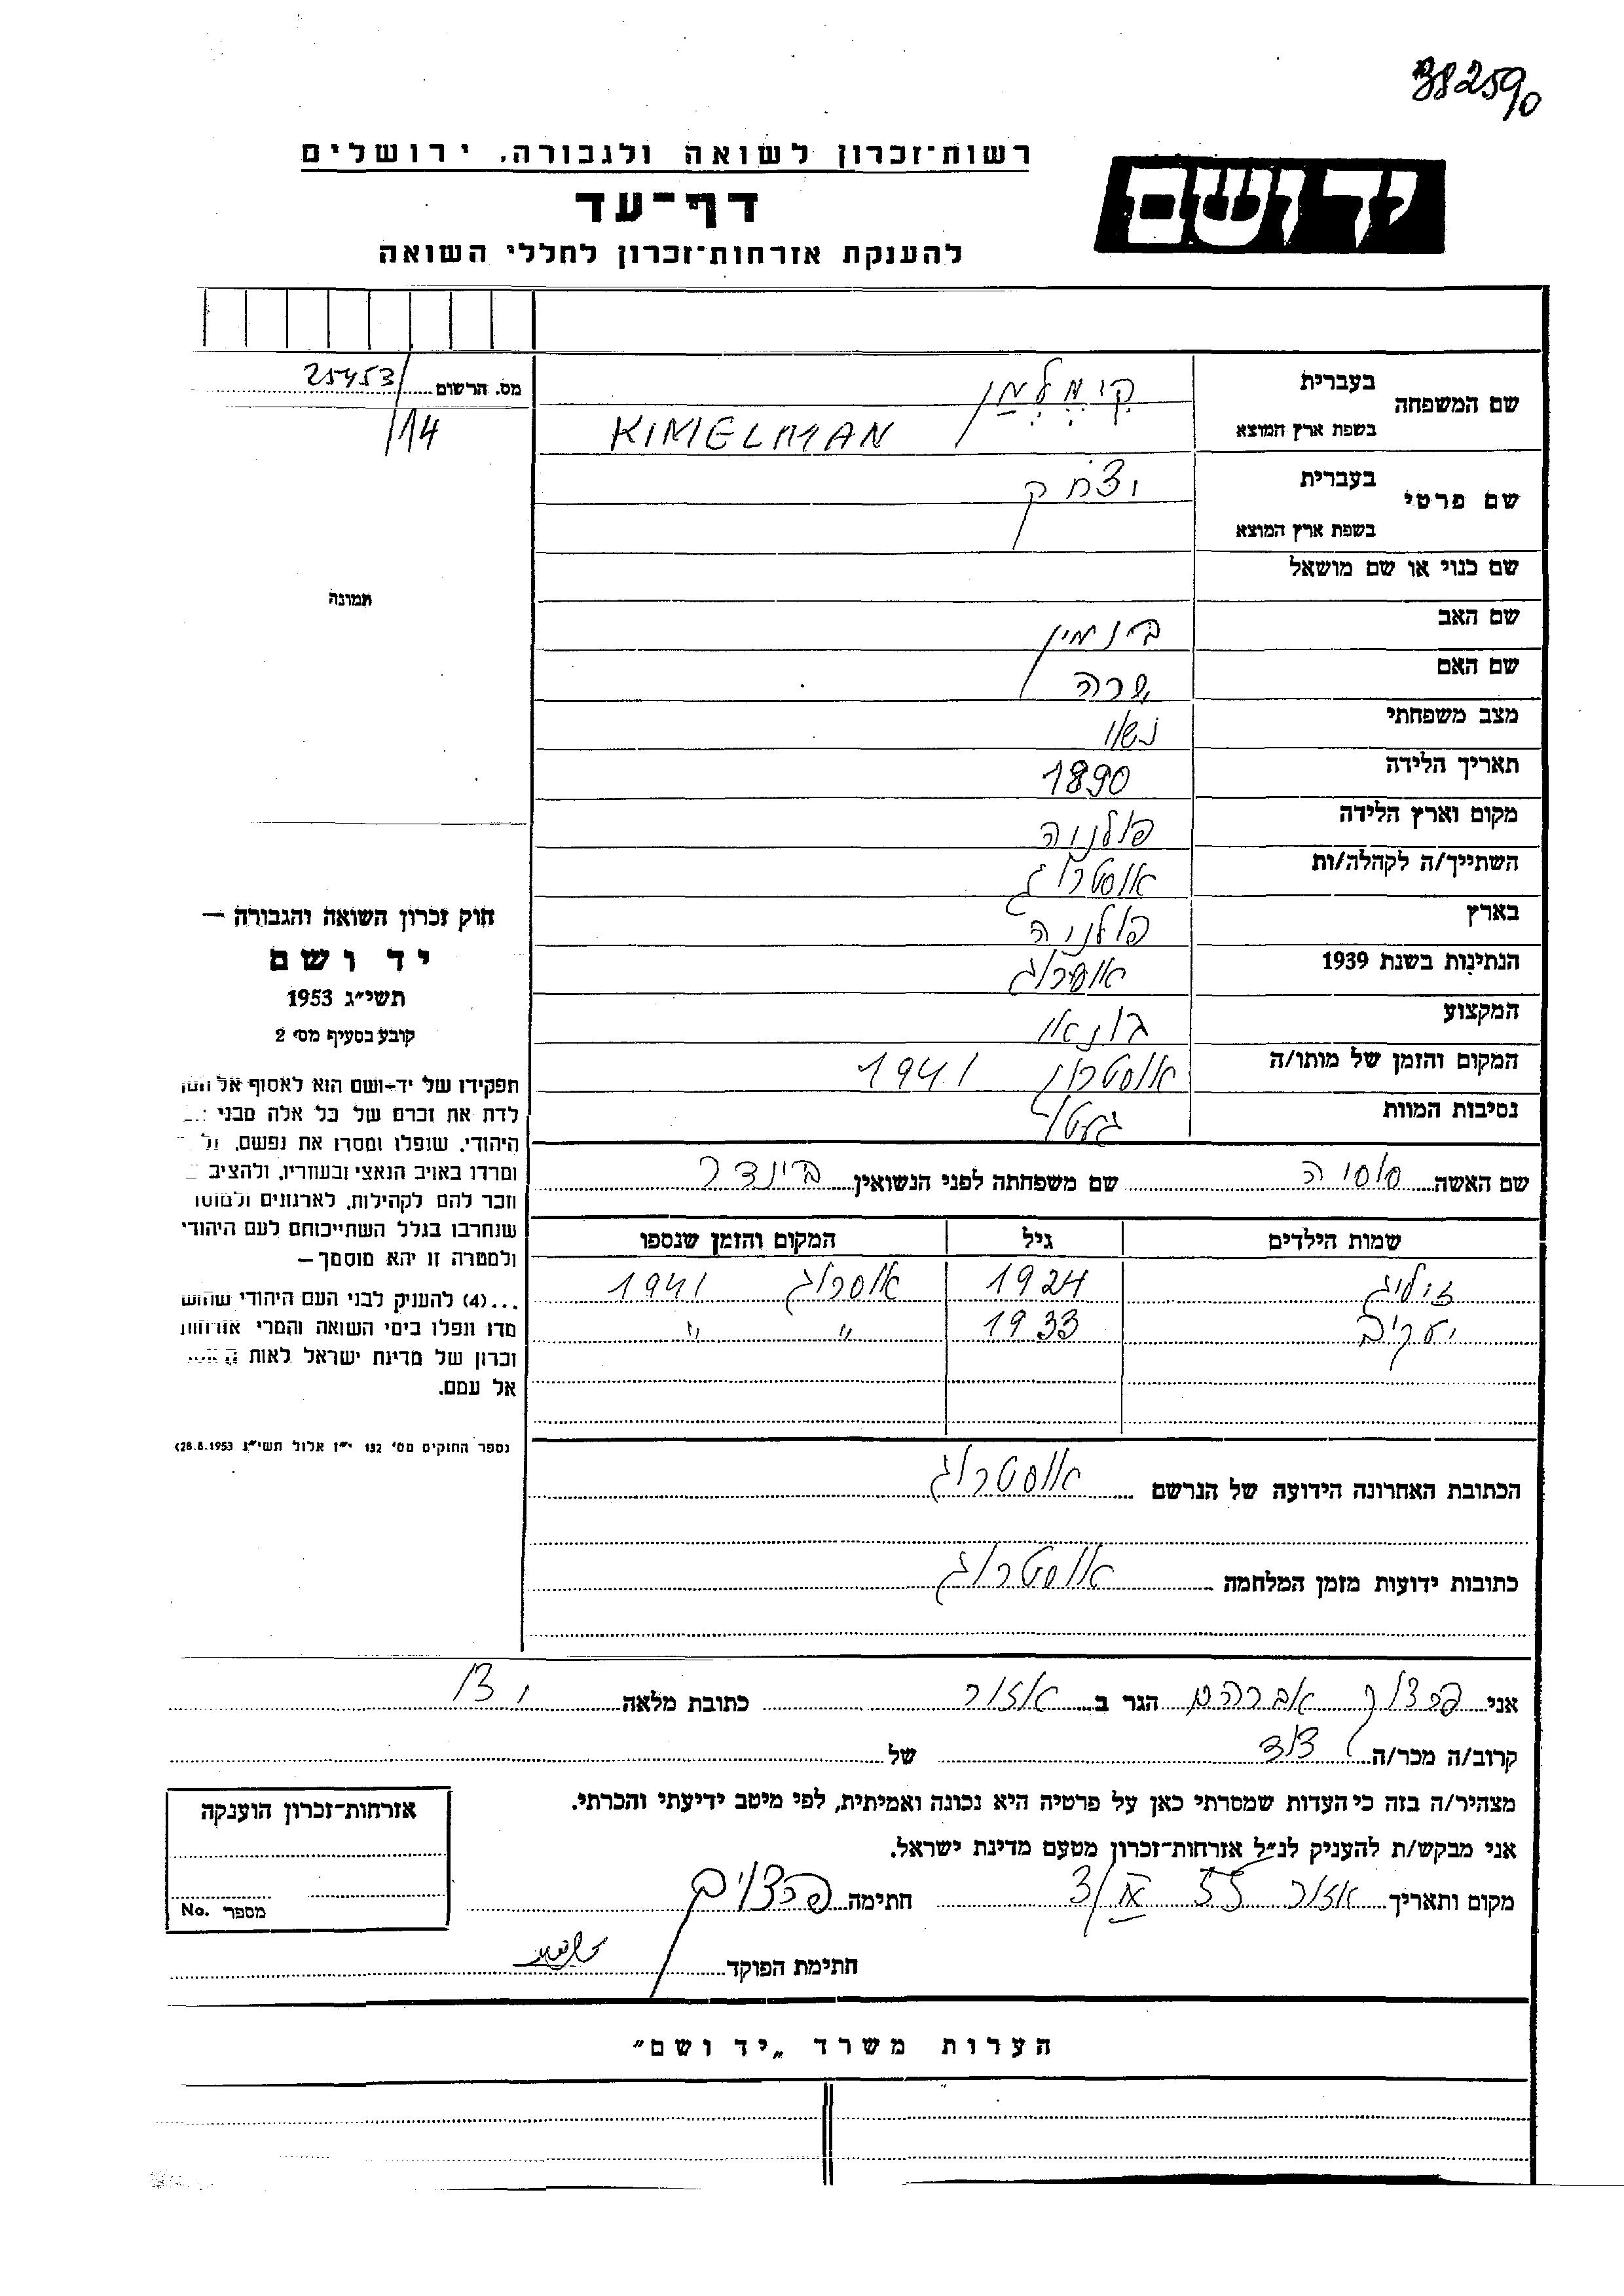 382590
רשות־זכרון לשואה ולגבורה, ירושלים
יד ושם
דף־עד
להענקת אזרחות־זכרון לחללי השואה
מס. הרשום 25453/
/14
תמונה
שם המשפחה
בעברית קִימֶלְמַן
בשפת ארץ המוצא KIMELMAN
שם פרטי
בעברית יצחק
בשפת ארץ המוצא
שם כנוי או שם מושאל
שם האב בנימין
שם האם שרה
מצב משפחתי נשוי
תאריך הלידה 1890
מקום וארץ הלידה פולניה
השתייך/ה לקהלה/ות אוסטרוג
בארץ פולניה
הנתינות בשנת 1939 אוסטרוג
המקצוע
המקום והזמן של מותו/ה 1941
נסיבות המוות
שם האשה סוסיה שם משפחתה לפני הנשואין בינדר
שמות הילדים גיל המקום והזמן שנספו
זוליג 1924 אוסטרוג 1941
יעקוב 1933 " "
חוק זכרון השואה והגבורה —
יד ושם
תשי״ג 1953
קובע בסעיף מס׳ 2
תפקידו של יד־ושם הוא לאסוף אל
לדת את זכרם של כל אלה מבני
היהודי, שנפלו ומסרו את נפשם,
ומרדו באויב הנאצי ובעוזריו, ולהציב
וזכר להם לקהילות, לארגונים
שנחרבו בגלל השתייכותם לעם היהודי
ולמטרה זו יהא מוסמך —
...(4) להעניק לבני העם היהודי
מדו ונפלו בימי השואה והמרי אזרחות
זכרון של מדינת ישראל לאות
אל עמם.
נספר החוקים מס׳ 132 י״ז אלול תשי״ג 28.8.1953)
הכתובת האחרונה הידועה של הנרשם אוסטרוג
כתובות ידועות מזמן המלחמה אוסטרוג
אני אברהם הגר ב אזור כתובת מלאה
קרוב/ה מכר/ה דוד של
מצהיר/ה בזה כי העדות שמסרתי כאן על פרטיה היא נכונה ואמיתית, לפי מיטב ידיעתי והכרתי.
אני מבקש/ת להעניק לנ״ל אזרחות־זכרון מטעם מדינת ישראל.
מקום ותאריך אזור 55 חתימה
חתימת הפוקד
אזרחות־זכרון הוענקה
מספר No.
הערות משרד „יד ושם״